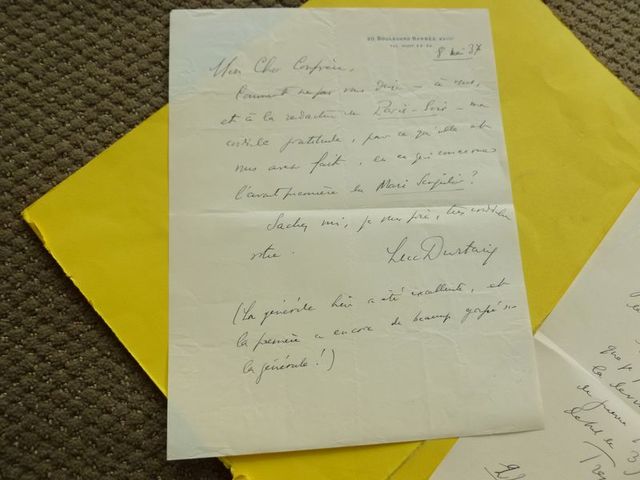 20 Boulevard Barbès
8 mai 37
Mon Cher Confrère,
Comment ne pas vous dire – à vous,
et à la rédaction de Paris-Soir – ma
cordiale gratitude, pour ce qu'elle et
vous avez fait, en ce qui concerne
l'avant première du Mari Singulier?
Sachez moi, je vous prie, très cordialement
vôtre.
Luc Durtain
(La générale hier a été excellente, et
la première a encore de beaucoup gagné sur
la générale!)
que j'
la